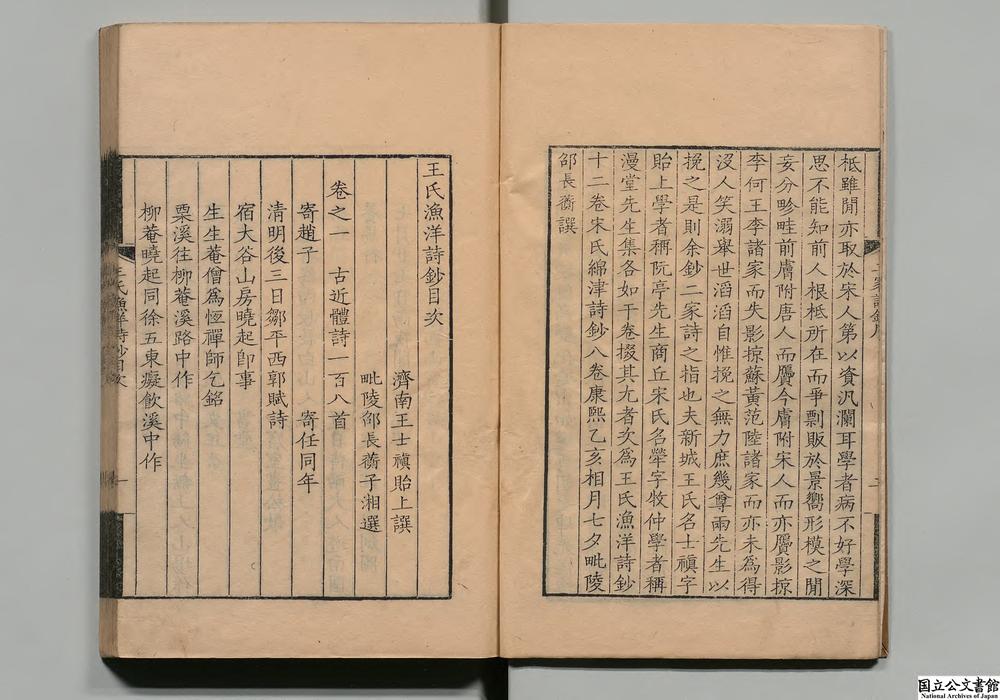 柢雖閒亦取於宋人第以資汎瀾耳學者病不好學深
思不能知前人根柢所在而爭剽販於景嚮形模之閒
妄分畛畦前膚附唐人而贗今膚附宋人而亦贗影掠
李何王李諸家而失影掠蘇黃范陸諸家而亦未爲得
沒人笑溺舉世滔滔自惟挽之無力庶幾尊兩先生以
挽之是則余鈔二家詩之指也夫新城王氏名士禛字
貽上學者稱阮亭先生商丘宋氏名犖字牧仲學者稱
漫堂先生集各如干卷掇其尤者次爲王氏漁洋詩鈔
十二卷宋氏綿津詩鈔八卷康熙乙亥相月七夕毗陵
邵長蘅譔
王氏漁洋詩鈔目次
濟南王士禛貽上譔
毗陵邵長蘅子湘選
卷之一　古近體詩一百八首
寄趙子　寄任同年
清明後三日鄒平西郭賦詩
宿大谷山房曉起卽事
生生菴僧爲恆禪師乞銘
栗溪往柳菴溪路中作
柳菴曉起同徐五東癡飮溪中作
王氏漁洋詩鈔目次
一
国立公文書館
National Archives of Japan